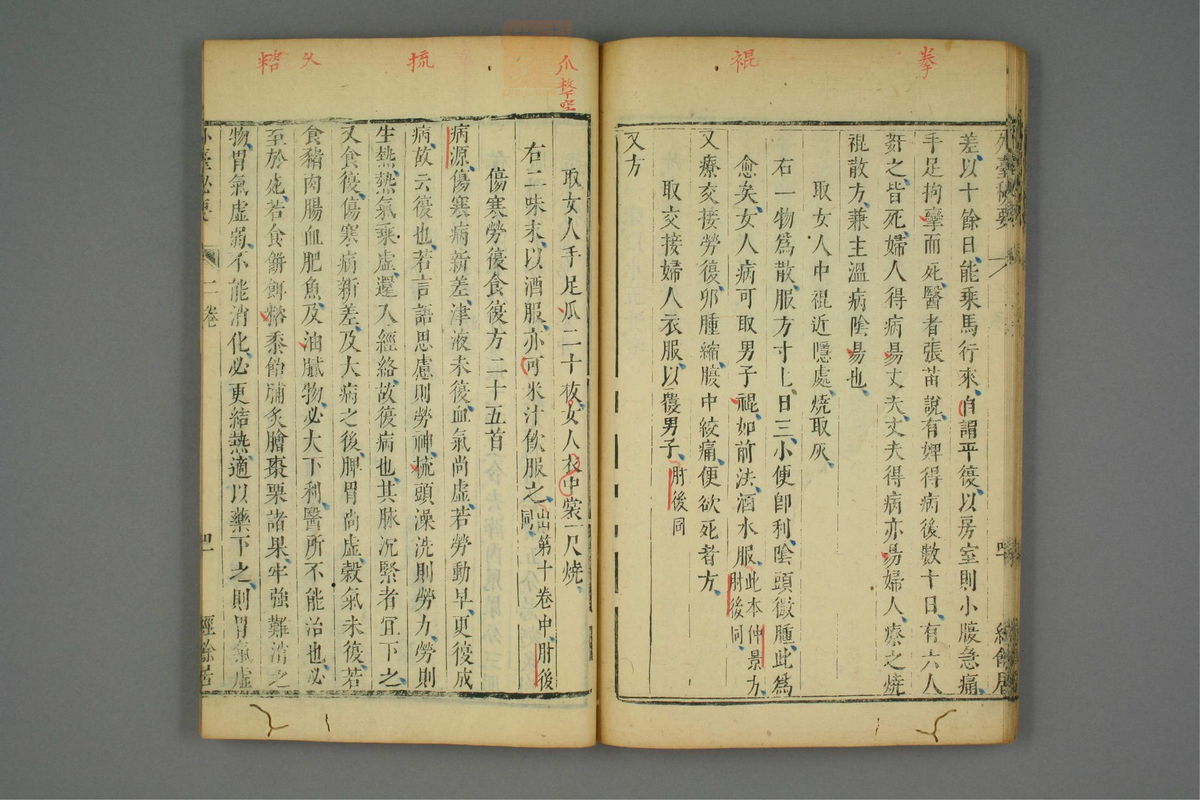 拳
裩
差、以十餘日、能乘馬行來、自謂平復、以房室則小腹急痛、
手足拘攣而死、醫者張苗說、有婢得病後數十日、有六人
姧之、皆死、婦人得病昜丈夫、丈夫得病亦昜婦人、療之、燒
裩散方、兼主溫病陰昜也、
取女人中裩近隱處、燒取灰、
右一物爲散、服方寸匕、日三、小便卽利、陰頭微腫、此爲
愈矣、女人病可取男子裩、如前法、酒水服、此本仲景方、肘後同、
又療交接勞復、卵腫縮、腹中絞痛、便欲死者方、
取交接婦人衣服、以覆男子、肘後同
又方
爪
摮
梳
又
糉
取女人手足瓜二十枚、女人衣中裳一尺燒、
右二味末、以酒服、亦可米汁飲服之、出第十卷中、肘後同、
傷寒勞復食復方二十五首
病源、傷寒病新差、津液未復、血氣尚虛、若勞動早、更復成
病、故云復也、若言語思慮則勞神、梳頭澡洗則勞力、勞則
生熱、熱氣乘虛還入經絡、故復病也、其脉沉緊者宜下之、
又食復、傷寒病新差、及大病之後、脾胃尚虛、穀氣未復、若
食豬肉腸血肥魚、及油膩物、必大下利、醫所不能治也、必
至於死、若食餅餌糉黍飴脯炙膾棗栗諸果、牢強難消之
物、胃氣虛弱、不能消化、必更結熱、適以藥下之、則胃氣虛
外臺祕要
二卷
經餘居